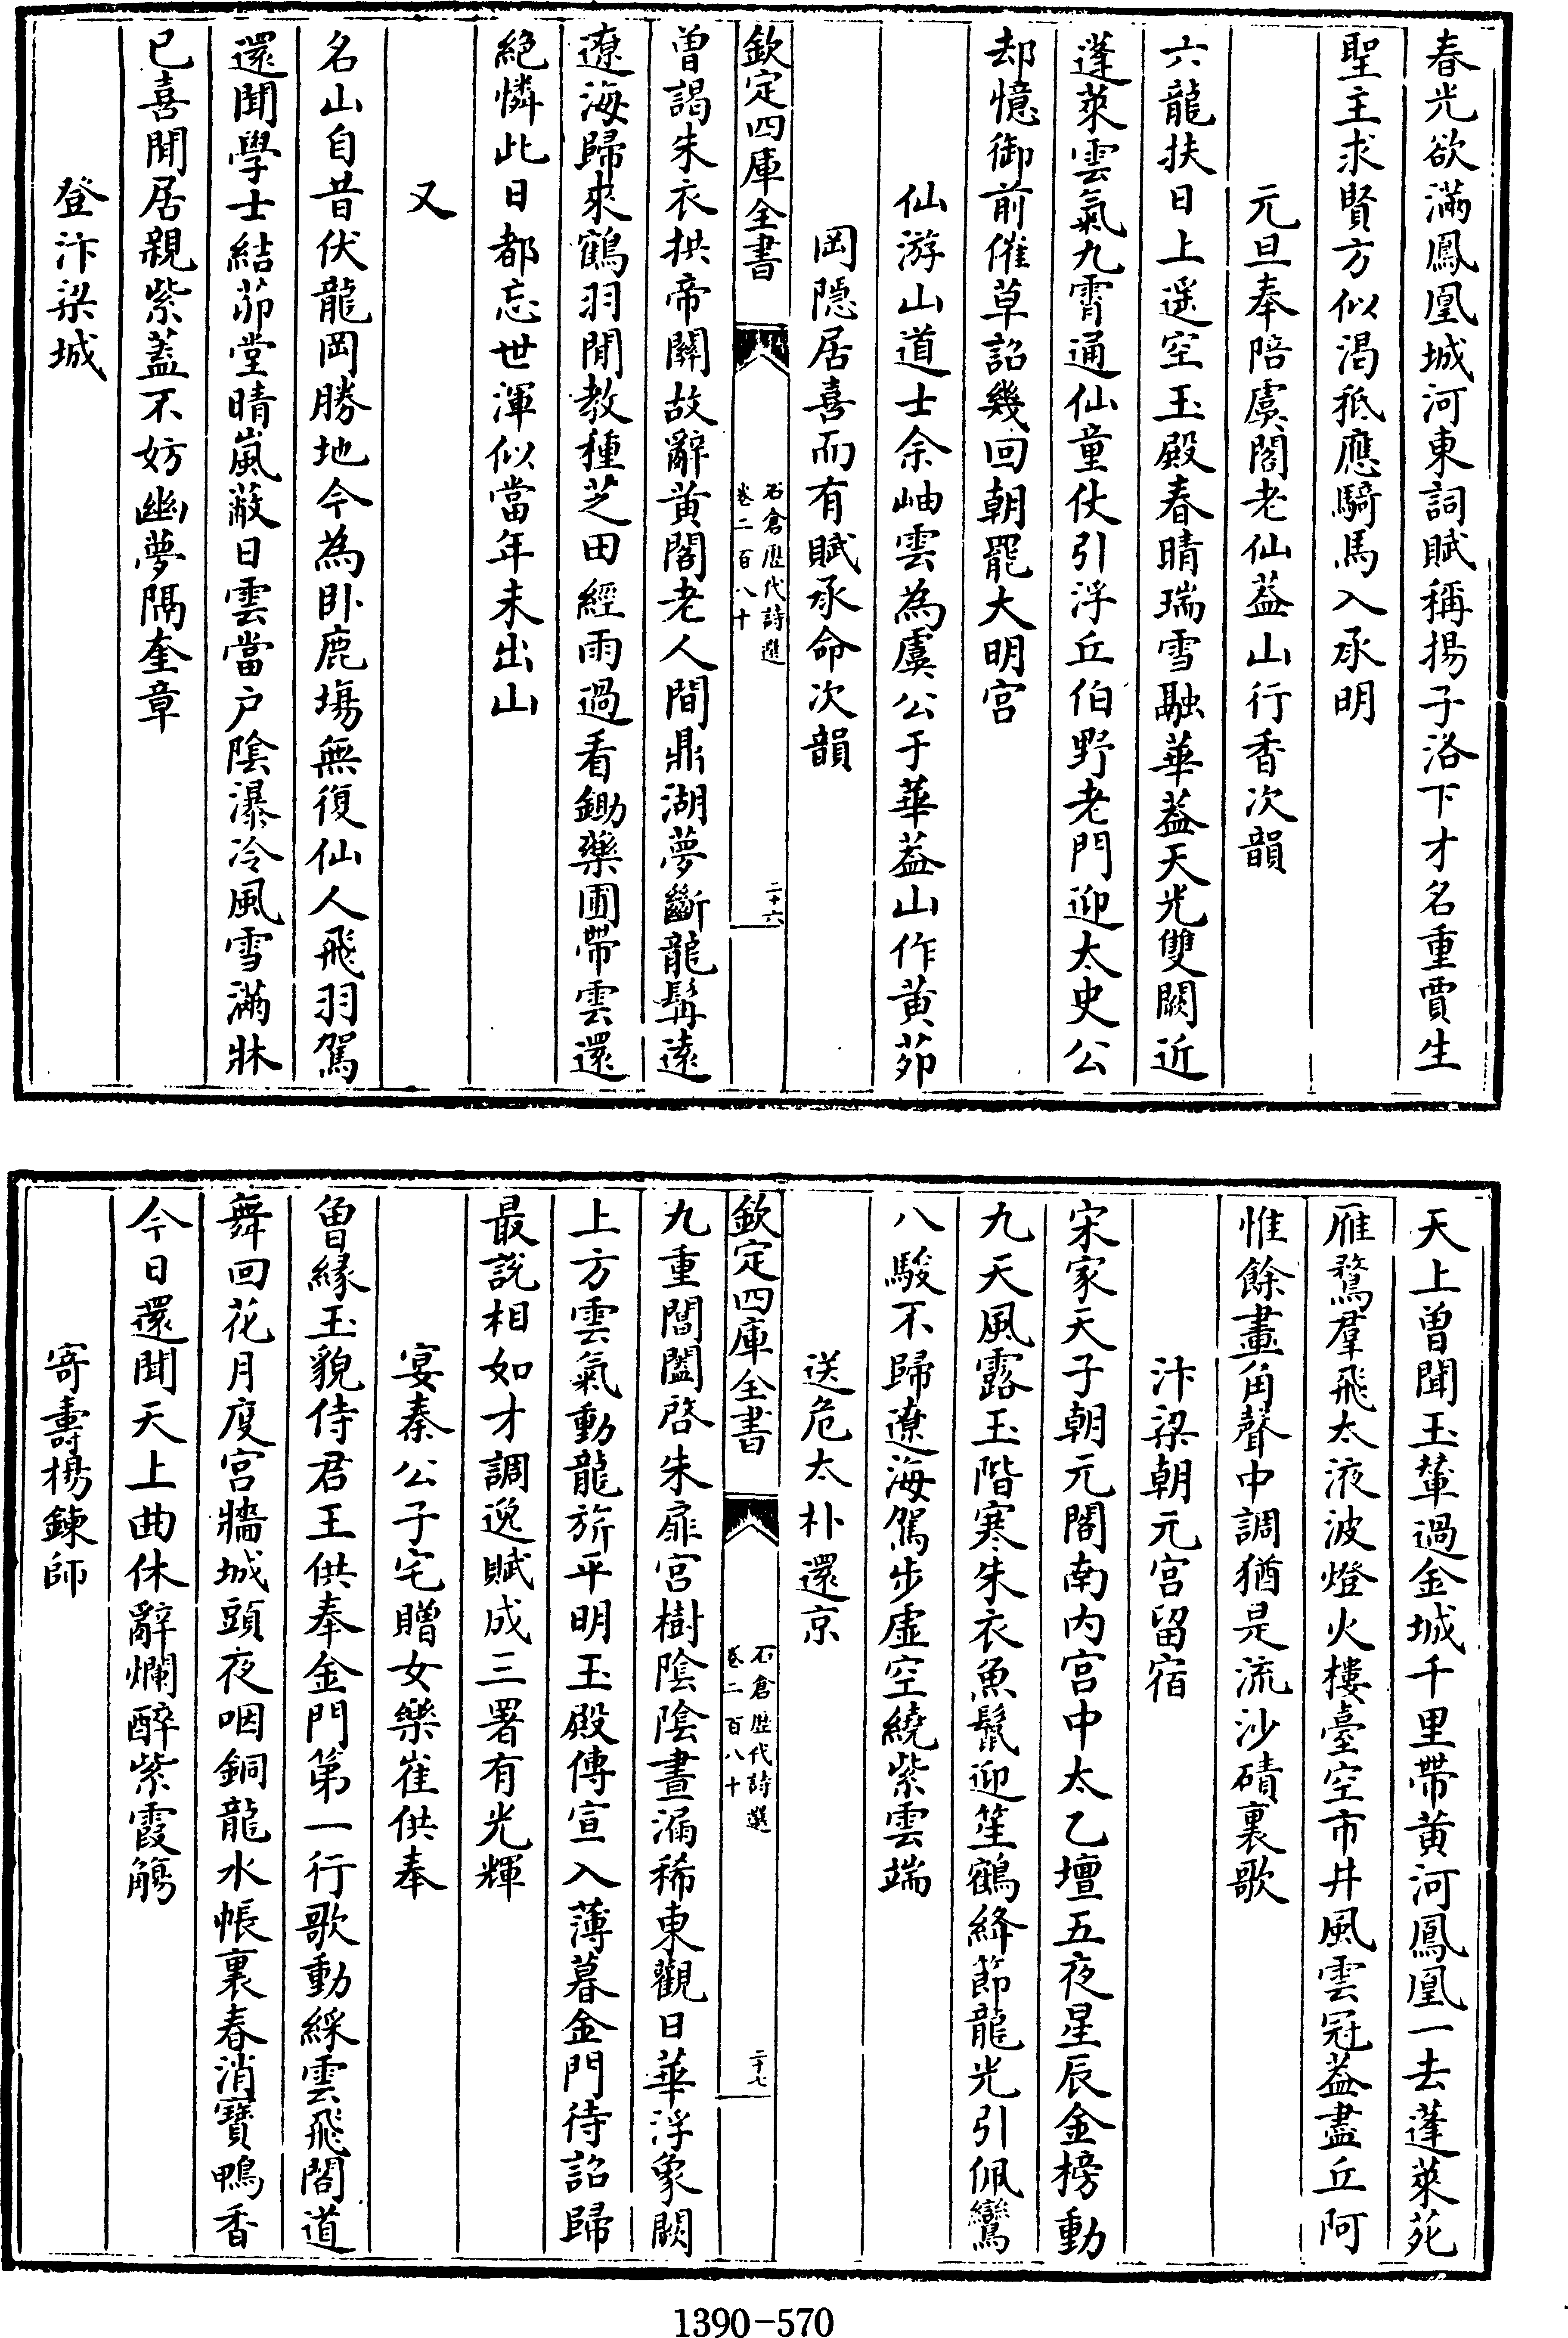 春光欲滿鳳凰城河東詞賦稱揚子洛下才名重賈生
聖主求賢方似渴秖應騎馬入承明
元旦奉陪虞閣老仙葢山行香次韻
六龍扶日上遥空玉殿春晴瑞雪融華葢天光雙闕近
蓬萊雲氣九霄通仙童仗引浮丘伯野老門迎太史公
却憶御前催草詔幾回朝罷大明宫
仙游山道士余岫雲為虞公于華葢山作黄茆
岡隱居喜而有賦承命次韻
欽定四庫全書
石倉歴代詩選
卷二百八十
二十六
曽謁朱衣拱帝闗故辭黄閣老人間鼎湖夢斷龍髯逺
遼海歸來鶴羽閒教種芝田經雨過看鋤藥圃帶雲還
絶憐此日都忘世渾似當年未出山
又
名山自昔伏龍岡勝地今為卧鹿塲無復仙人飛羽駕
還聞學士結茆堂晴嵐蔽日雲當户陰瀑冷風雪滿牀
已喜閒居親紫蓋不妨幽夢隔奎章
登汴梁城
天上曽聞玉輦過金城千里帶黄河鳳凰一去蓬萊苑
雁鶩羣飛太液波燈火樓臺空市井風雲冠葢盡丘阿
惟餘畫角聲中調猶是流沙磧裏歌
汴梁朝元宫留宿
宋家天子朝元閣南内宫中太乙壇五夜星辰金榜動
九天風露玉階寒朱衣魚鬛迎笙鶴絳節龍光引佩鸞
八駿不歸遼海駕步虚空繞紫雲端
送危太朴還京
欽定四庫全書
石倉歴代詩選
卷二百八十
二十七
九重閶闔啓朱扉宫樹陰陰晝漏稀東觀日華浮象闕
上方雲氣動龍旂平明玉殿傳宣入薄暮金門待詔歸
最説相如才調逸賦成三署有光輝
宴秦公子宅贈女樂崔供奉
曽緣玉貌侍君王供奉金門第一行歌動綵雲飛閣道
舞回花月度宫牆城頭夜咽銅龍水帳裏春消寶鴨香
今日還聞天上曲休辭爛醉紫霞觴
寄壽楊鍊師
1390-570